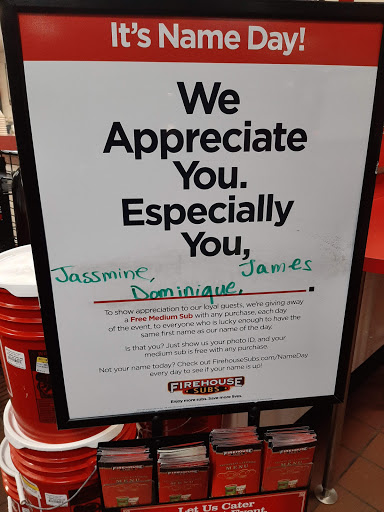 It's Name Day!
We
Appreciate
You.
Especially
You,
Jassmine, James
Dominique.
To show appreciation to our loyal guests, we're giving away
a Free Medium Sub with any purchase, each day
of the event, to everyone who is lucky enough to have the
same first name as our name of the day.
Is that you? Just show us your photo ID, and your
medium sub is free with any purchase.
Not your name today? Check out FirehouseSubs.com/NameDay
every day to see if your name is up!
FIREHOUSE
SUBS
Enjoy more subs. Save more lives.
FIREHOUSE
MENU
FIREHOUSE
MENU
FIREHOUSE
MENU
FIREHOUSE
MENU
Let Us Cater
Event.